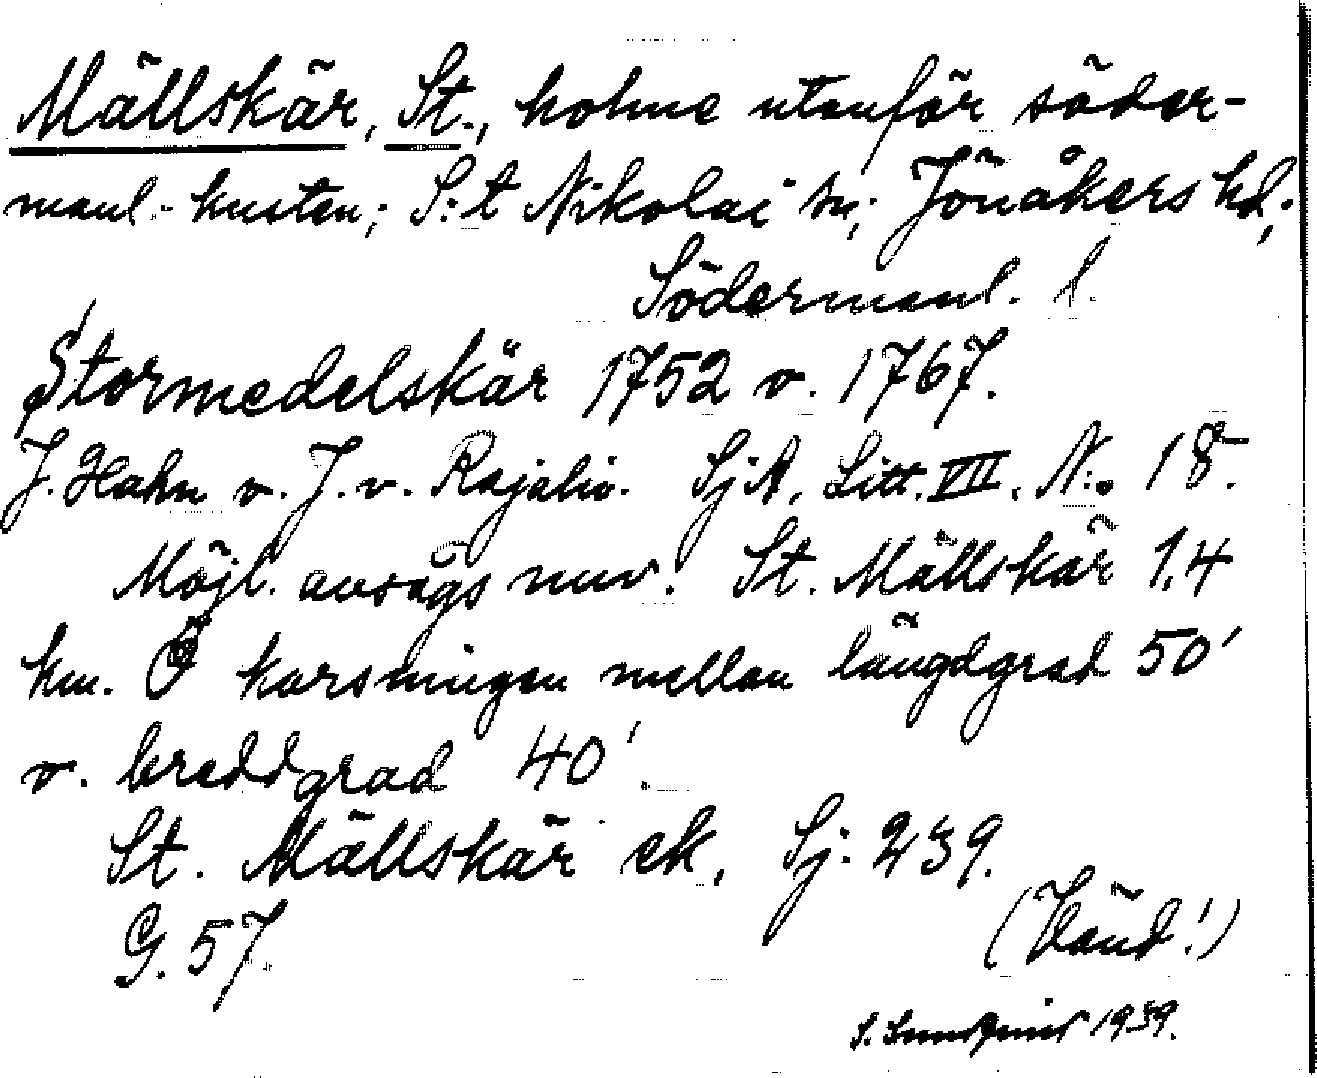 Mällskär, St., holme utanför söder-
manl.-kusten; S:t Nikolai sn; Jönåkers hd;
Södermanl. l.
Stormedelskär 1752 o. 1767.
J. Hahn o. J. v. Rajalin. SjA, Litt. VII, N:o 18.
Möjl. avsågs nuv. St. Mällskär 1,4
km. Ö korsningen mellan längdgrad 50'
o. breddgrad 40'.
St. Mällskär ek. Sj. 239.
G. 57.
(Vänd!)
S. 1939.